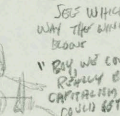 SEE WHICH
WAY THE WIND
BLOWS
" BOY, WE CO
REALLY
CAPITALISM
COULD